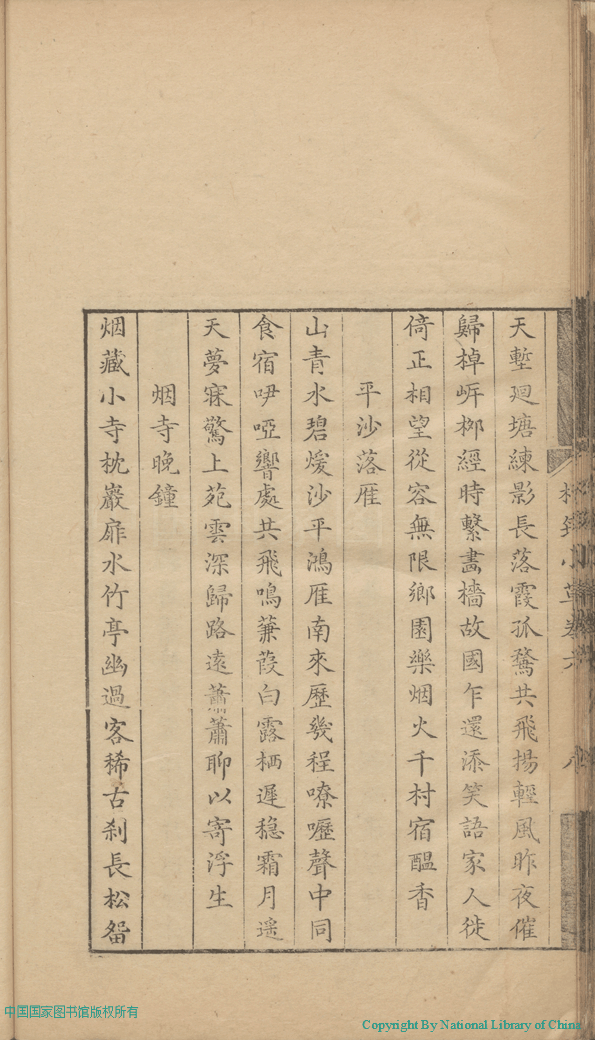 天塹迴塘練影長落霞孤鶩共飛揚輕風昨夜催
歸棹岍桞經時繫畵檣故國乍還添笑語家人徙
倚正相望從容無限鄉園樂烟火千村宿醖香
平沙落雁
山青水碧煖沙平鴻雁南來歷幾程嘹嚦聲中同
食宿咿啞響處共飛鳴蒹葭白露栖遲穏霜月遥
天夢寐驚上苑雲深歸路遠蕭蕭聊以寄浮生
烟寺晚鐘
烟藏小寺枕巖扉水竹亭幽過客稀古刹長松畱
小草卷六
八
中国国家图书馆版权所有
Copyright By National Library of China